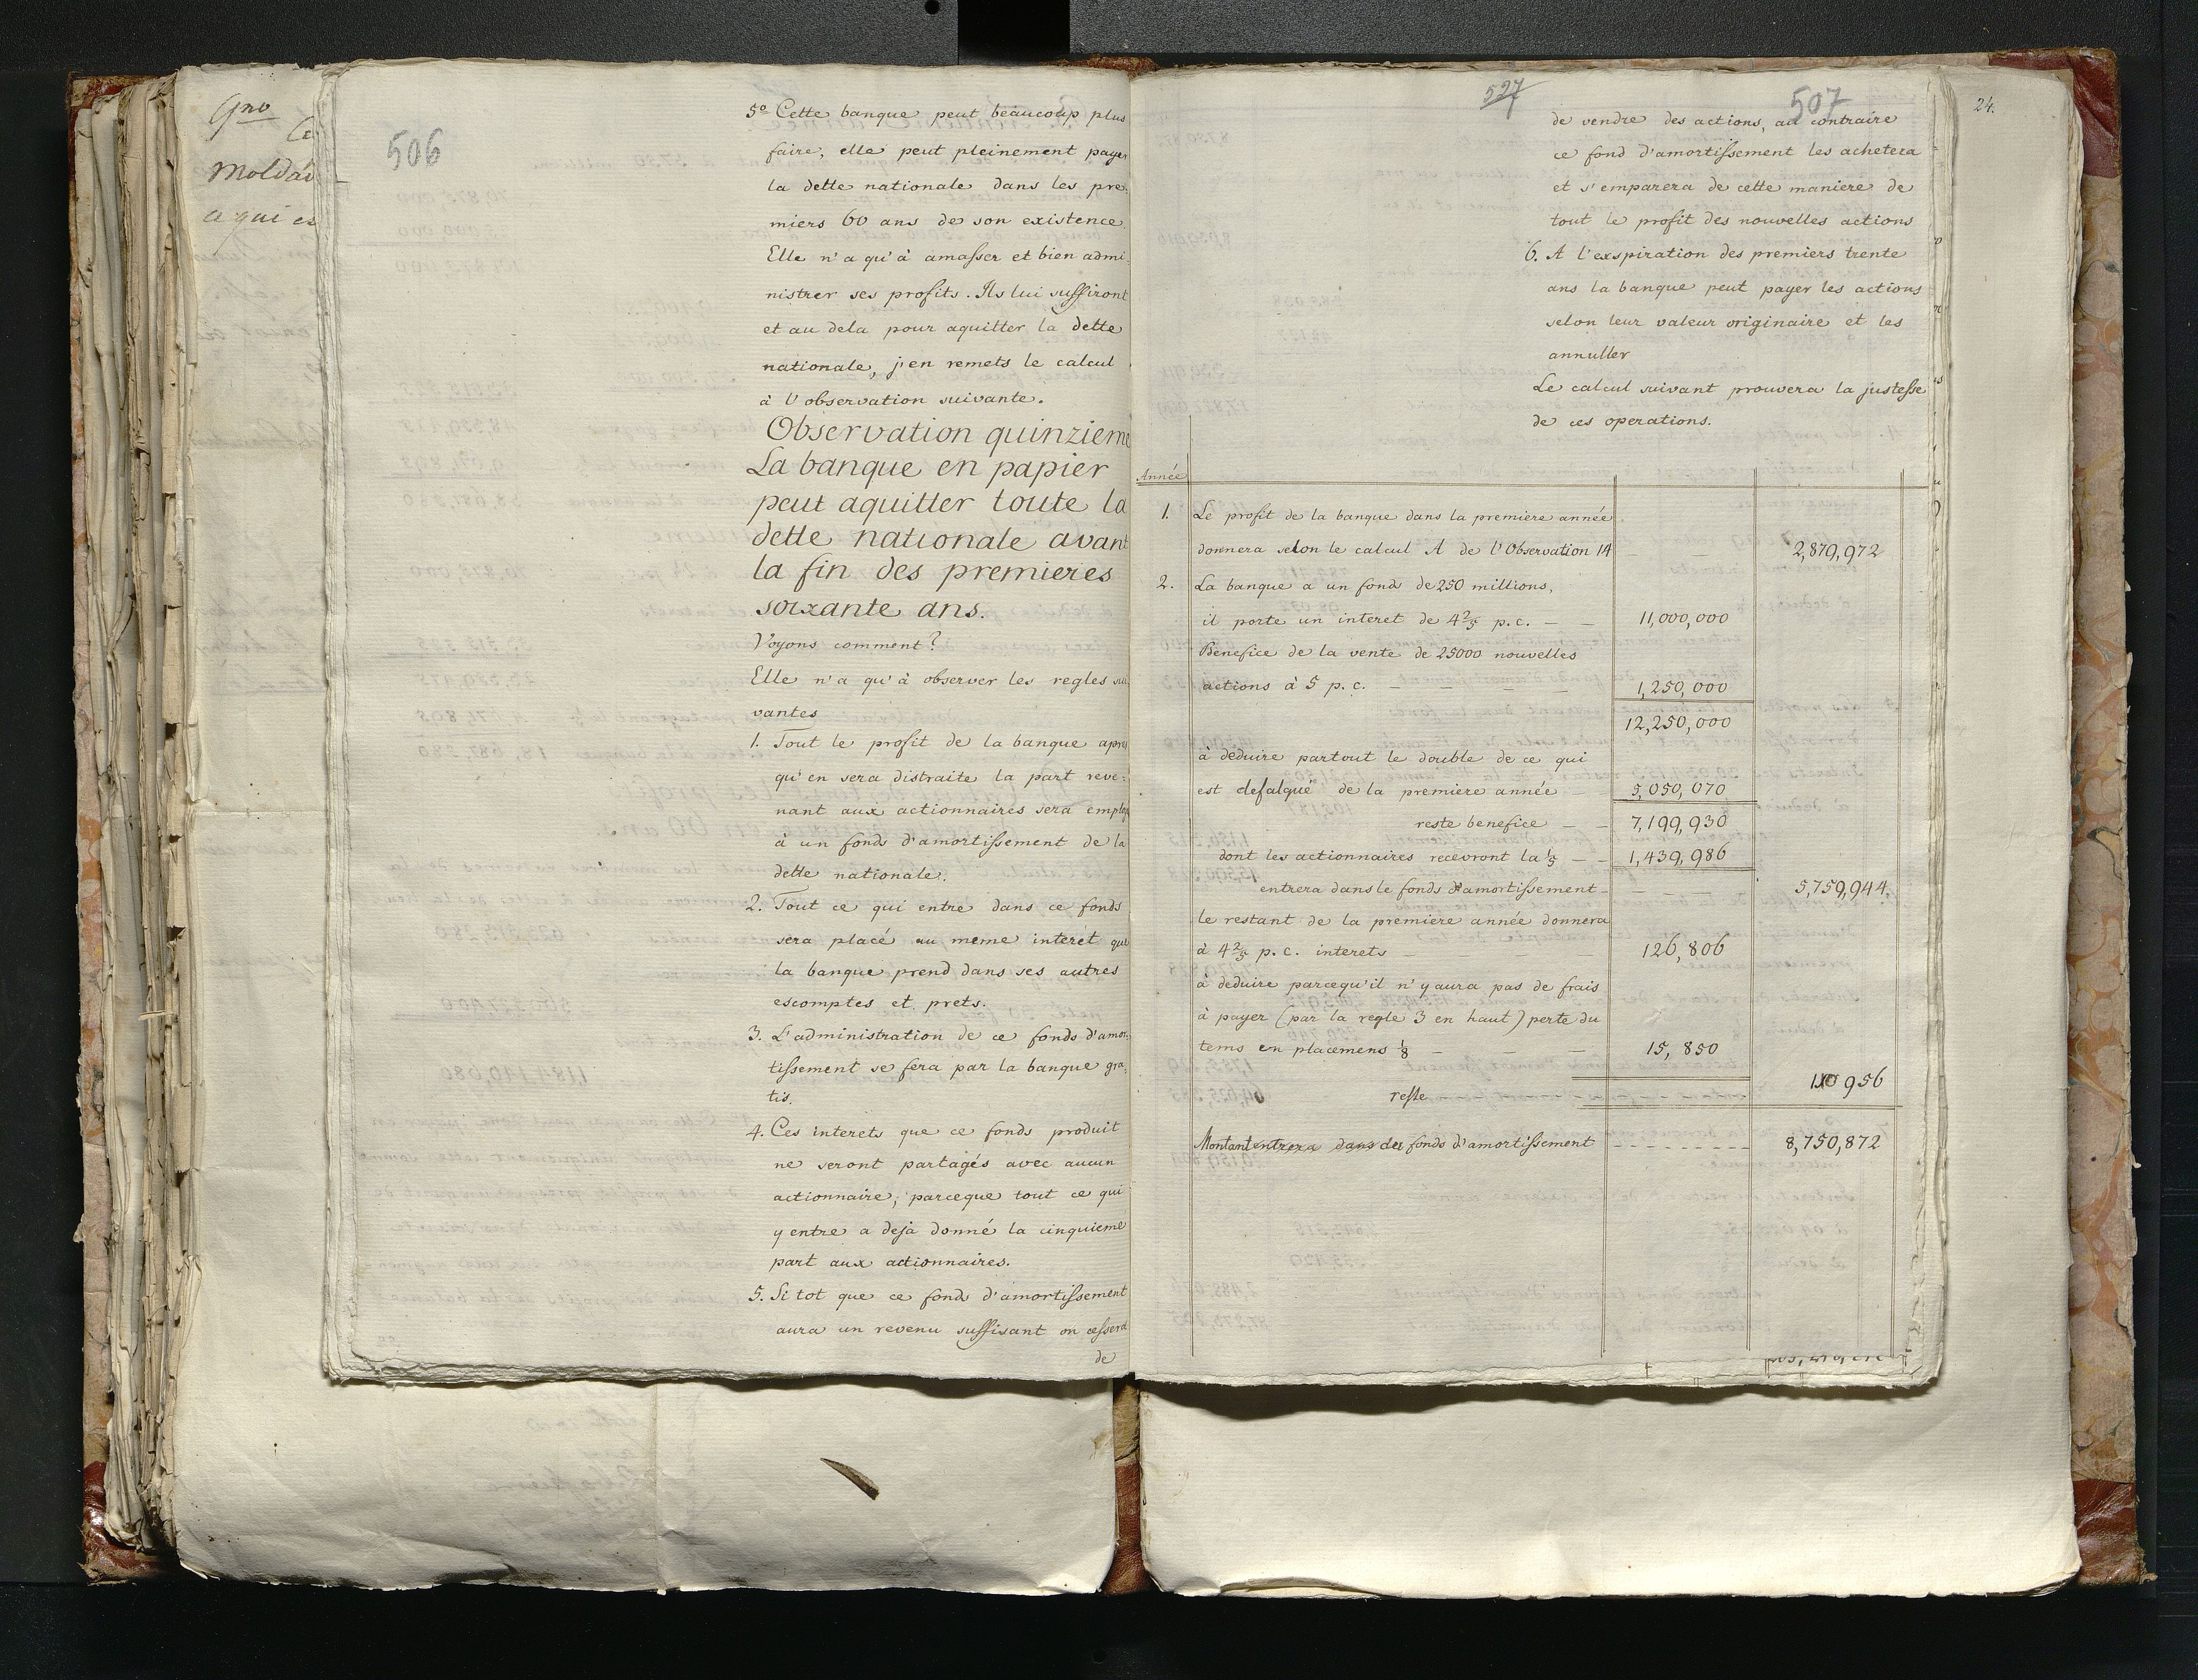 9no
Moldav
a qui es
506
5º Cette banque peut beaucoup plus
faire, elle peut pleinement payer
la dette nationale dans les pre
miers 60 ans de son existence.
Elle n'a qu'à amasser et bien admi:
nistrer ses profits. Ils lui suffiront
et au dela pour aquitter la dette
nationale, j'en remets le calcul
à l'observation suivante.
Observation quinzieme
La banque en papier
peut aquitter toute la
dette nationale avant
la fin des premieres
soixante ans.
Voyons comment?
Elle n'a qu'à observer les regles sui
vantes
1. Tout le profit de la banque apres
qu'en sera distraite la part reve:
nant aux actionnaires sera employ
à un fonds d'amortissement de la
dette nationale.
2. Tout ce qui entre dans ce fonds
sera placé au meme interet que
la banque prend dans ses autres
escomptes et prets.
3. L'administration de ce fonds d'amor:
tissement se fera par la banque gra:
tis.
4. Ces interets que ce fonds produit
ne seront partagés avec aucun
actionnaire, parceque tout ce qui
y entre a deja donné la cinquieme
part aux actionnaires.
5. Si tot que ce fonds d'amortissement
aura un revenu suffisant on cessera
de
527
507
24.
de vendre des actions, au contraire
ce fond d'amortissement les achetera
et s'emparera de cette maniere de
tout le profit des nouvelles actions
6. A l'exspiration des premiers trente
ans la banque peut payer les actions
selon leur valeur originaire et les
annuller
Le calcul suivant prouvera la justesse
de ces operations.
Année
1. Le profit de la banque dans la premiere année
donnera selon le calcul A de l'Observation 14 — — 2,879,972
2. La banque a un fond de 250 millions,
il porte un interet de 4 2/5 p.c. — — 11,000,000
Benefice de la vente de 25000 nouvelles
actions à 5 p.c. — — — — 1,250,000
12,250,000
à deduire partout le double de ce qui
est defalqué de la premiere année — — 5,050,070
reste benefice — — 7,199,930
dont les actionnaires recevront la 1/5 — — 1,439,986
entrera dans le fonds d'amortissement — — — 5,759,944.
le restant de la premiere année donnera
à 4 2/5 p.c. interets — — — — 126,806
à deduire parcequ'il n'y aura pas de frais
à payer (par la regle 3 en haut) perte du
tems en placemens 1/8 — — — 15,850
reste - - - - - - - - 110 956
Montant entrera dans du fonds d'amortissement - - - - - - - - 8,750,872